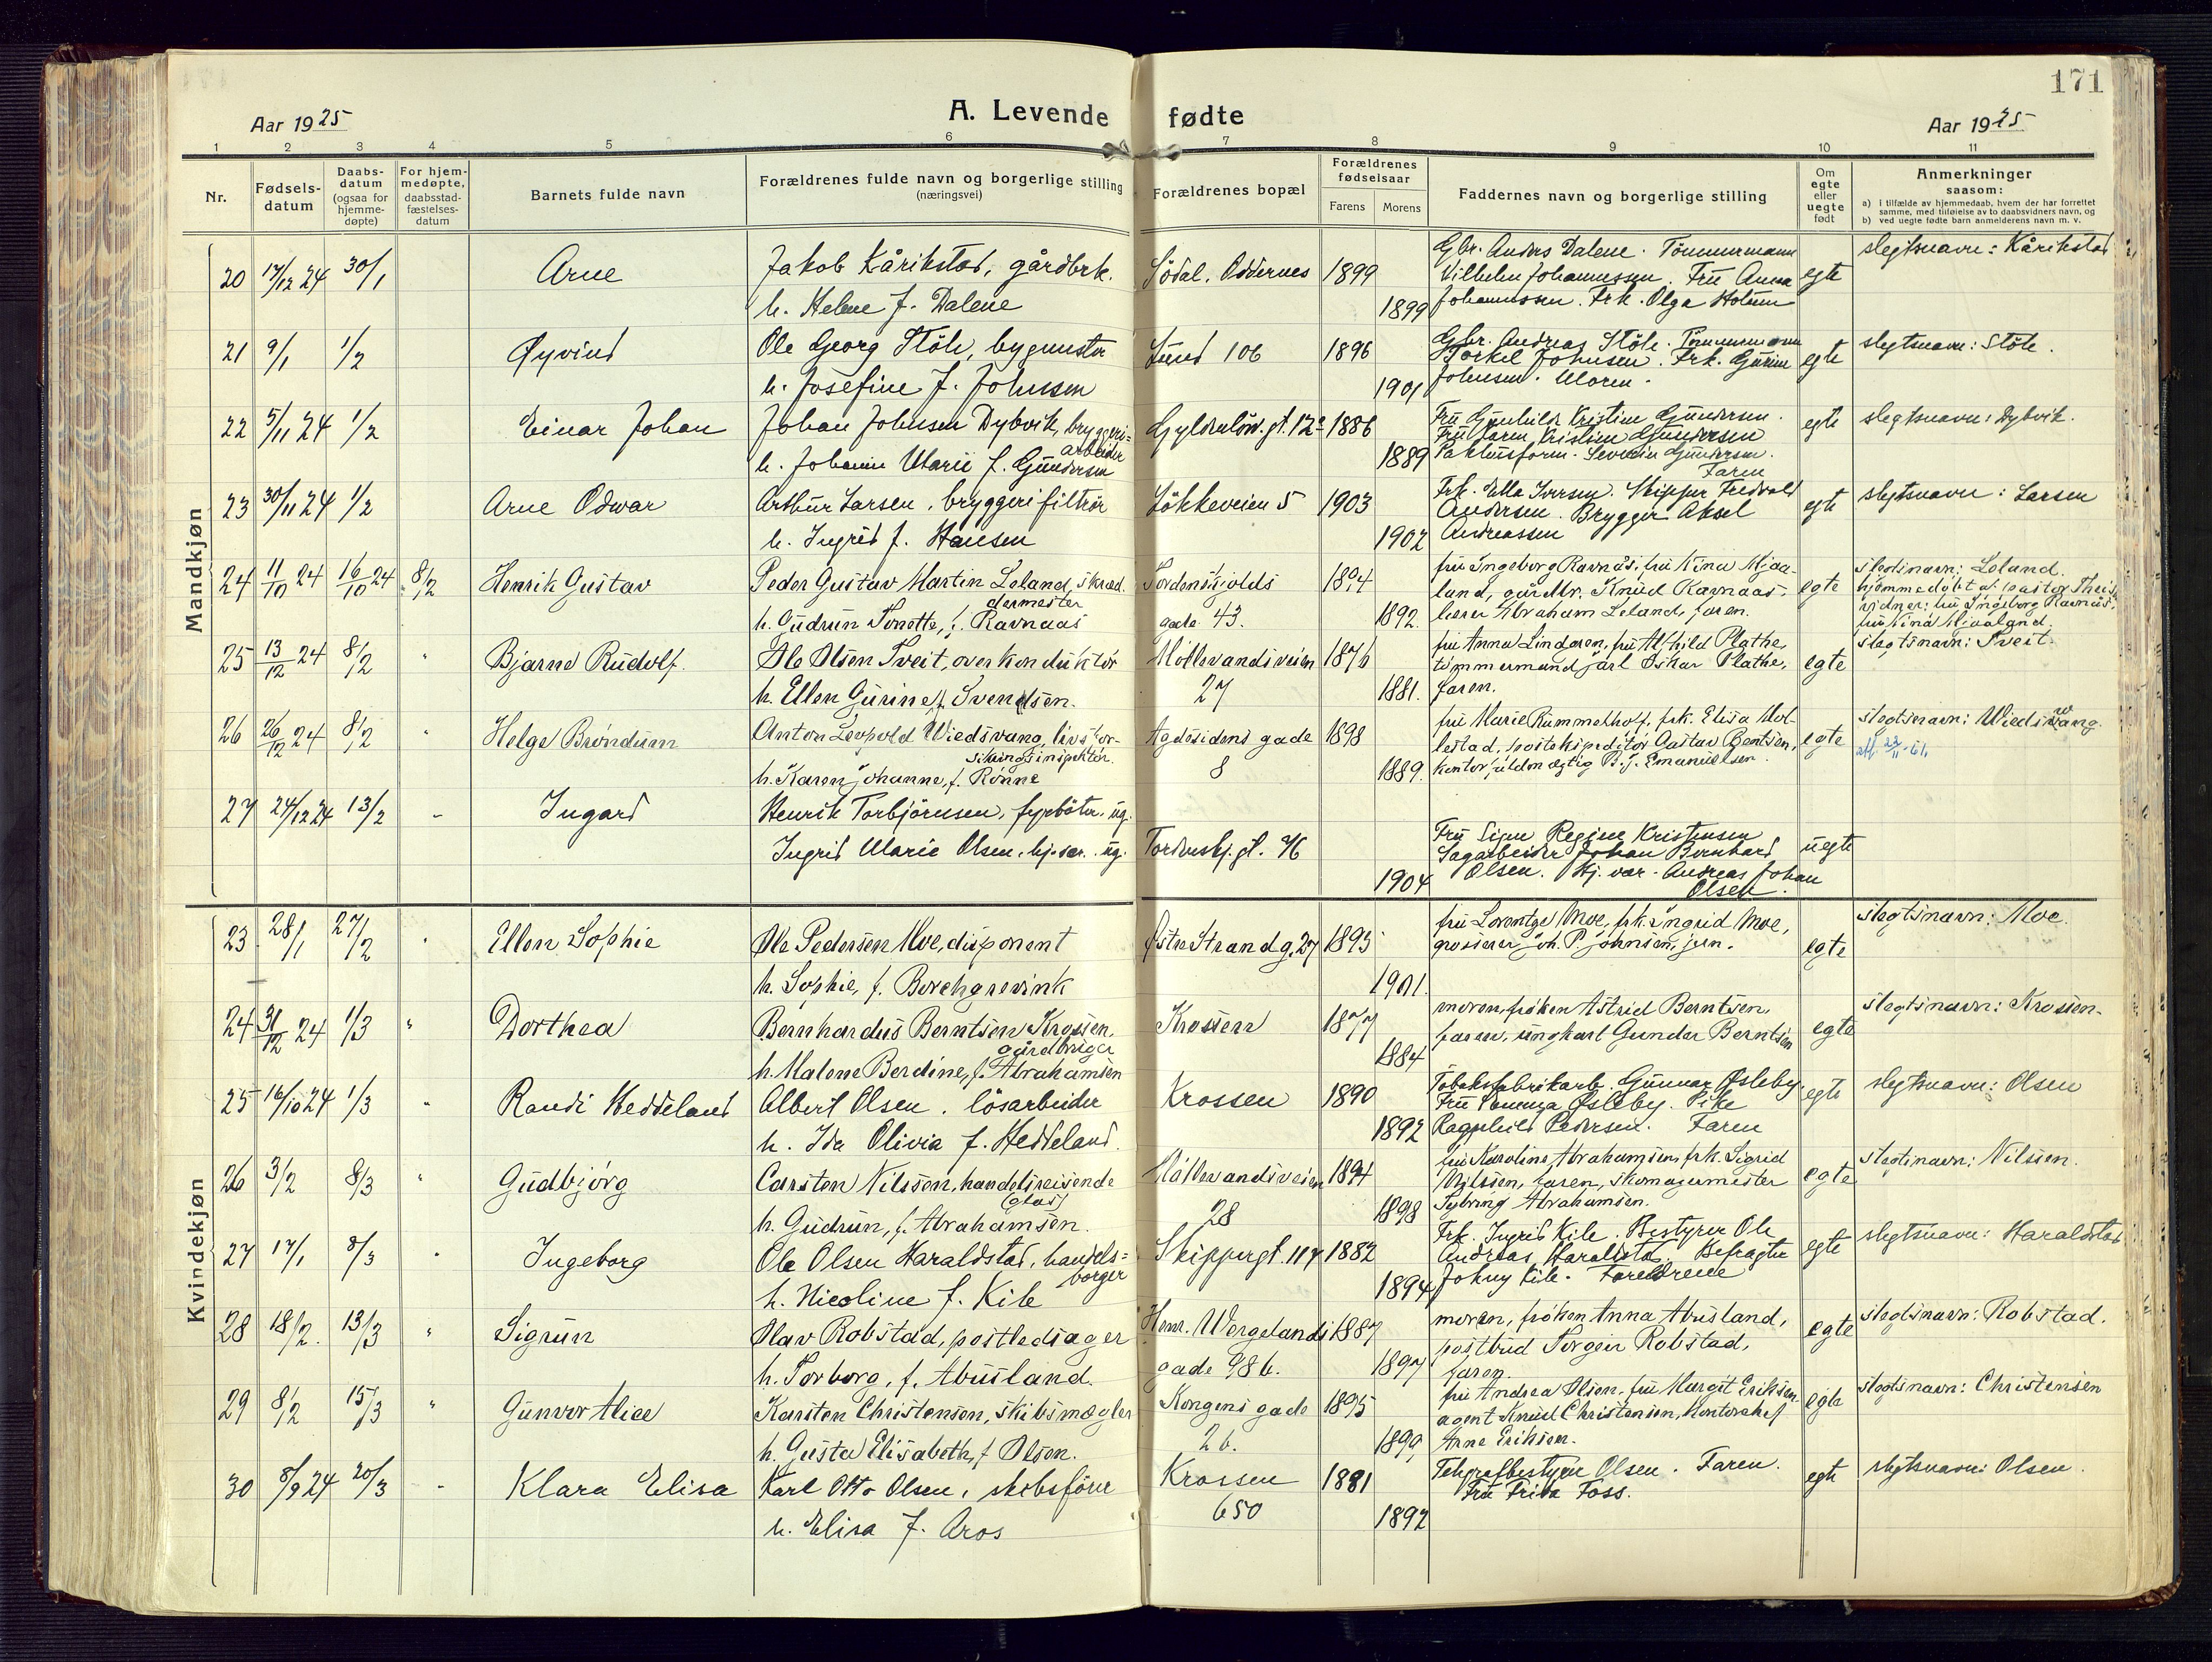 171
A. Levende fødte
Aar 1925
Aar 1925
1 2 3 4 5 6 7 8 9 10 11
Nr.
Fødsels-
datum
Daabs-
datum
(ogsaa for
hjemme-
døpte)
For hjem-
medøpte,
daabsstad-
fæstelses-
datum
Barnets fulde navn
Forældrenes fulde navn og borgerlige stilling
(næringsvei)
Forældrenes bopæl
Forældrenes
fødselsaar
Farens Morens
Faddernes navn og borgerlige stilling
Om
egte
eller
uegte
født
Anmerkninger
saasom:
a) i tilfælde av hjemmedaab, hvem der har forrettet
samme, med tilføielse av to daabsvidners navn, og
b) ved uegte fødte barn anmelderens navn m. v.
Mandkjøn
20 17/12 24 30/1 Arne
Jakob Kårikstad, gårdbrk.
h. Helene f. Dalene
Södal. Oddernes 1899
1899
Gbr. Anders Dalene. Tömmermann
Vilhelm Johannessen. Fru Anna
Johannessen. Frk. Olga Holum
egte
slegtsnavn: Kårikstad
21 9/1 1/2 Øyvind
Ole Georg Stöle, bygmester
h. Josefine f. Johnsen
Lund 106 1896
1901
Gbr. Andreas Stöle. Tömmermann
Torkel Johnsen. Frk. Gurine
Johnsen. Moren.
egte
slegtsnavn: Stöle.
22 5/11 24 1/2 Einar Johan
Johan Johnsen Dybvik, bryggeri=
arbeider
h. Johanne Marie f. Gundersen
Gyldenlöv. gt. 12 1886
1889
Fru Gunhild Kristine Gundersen.
Fru Karen Kristine Gundersen
Pakhusform. Severin Gundersen.
Faren
egte
slegtsnavn: Dybvik.
23 30/11 24 1/2 Arne Odwar
Arthur Larsen, bryggerifiltrör
h. Ingrid f. Hansen
Lökkeveien 5 1903
1902
Frk. Ella Iversen. Skipper Fredvald
Andersen. Brygger Aksel
Andreassen
egte
slegtsnavn: Larsen
24 11/10 24 16/10 24 8/2 Henrik Gustav
Peder Gustav Martin Leland, skræd.
dermester
h. Gudrun Tonette, f. Ravnaas
Tordenskjolds
gate 43.
1894
1892.
fru Ingeborg Ravnås, fru Kina Mjaa-
land, gårdbr. Knud Ravnaas,
lærer Abraham Leland, faren.
egte
slegtsnavn: Leland.
hjemmedöbt af pastor Theis,
vidner: fru Ingeborg Ravnås,
fru Kina Mjaaland.
25 13/12 24 8/2 " Bjarne Rudolf.
Ole Olsen Tveit, overkonduktör
h. Ellen Gurine, f. Svendsen.
Möllevandsveien
27
1876
1881.
fru Anna Lindgren, fru Alfhild Plathe,
tömmermand Jarl Oskar Plathe,
faren.
egte
slegtsnavn: Tveit.
26 26/12 24 8/2 " Helge Bröndum
Anton Leopold Wiedswang, livsfor-
sikringsinspektör.
h. Karen Johanne, f. Rönne
Agdesidens gade
8
1898
1889.
fru Marie Rummelhoff, frk. Elisa Mol-
lestad, postekspeditör Gustav Bentsen,
kontorfuldmægtig B. J. Emanuelsen.
egte
slegtsnavn: Wiedswang.
27 24/12 24 13/2 - Ingard
Henrik Torbjörnsen, fyrböter, ug.
Ingrid Marie Olsen, hj. vær. ug.
Tordenskj. gt. 46
1904
Fru Signe Regine Kristensen
Sagarbeider Johan Bernhard
Olsen. Hj. vær. Andreas Johan
Olsen.
uegte
Kvindekjøn
23 28/1 27/2 " Ellen Sophie
Ole Pedersen Moe, disponent
h. Sophie, f. Borchgrevink
Østre Strandg. 27 1893
1901.
fru Lorentze Moe, frk. Ingrid Moe,
grosserer Joh. P. Johnsen, jun.
egte
slegtsnavn: Moe.
24 31/12 24 1/3 " Dorthea
Bernhardus Berntsen Krossen,
gårdbruger
h. Malene Berdine, f. Abrahamsen
Krossen 1877
1884
moren, fröken Astrid Berntsen,
faren, ungkarl Gunder Berntsen
egte
slegtsnavn: Krossen.
25 16/10 24 1/3 " Randi Heddeland
Albert Olsen, lösarbeider
h. Ida Olivia f. Heddeland.
Krossen 1890
1892
Tobaksfabrikarb. Gunnar Øsleby.
Fru Øsleby. Pike
Ragnhild Pedersen. Faren
egte
slegtsnavn: Olsen
26 3/2 8/3 " Gudbjörg
Carsten Nilssen, handelsreisende
(glas)
h. Gudrun, f. Abrahamsen.
Möllevandsveien
28
1894
1898
fru Karoline Abrahamsen, frk. Sigrid
Nilssen, faren, skomagermester
Abrahamsen.
egte
slegtsnavn: Nilssen.
27 17/1 8/3 " Ingeborg
Ole Olsen Haraldstad, handels=
borger
h. Nicoline f. Kile
Skippergt. 117 1882
1894
Frk. Ingrid Kile. Bestyrer Ole
Andreas Haraldstad. Befragter
Johny Kile. Foreldrene
egte
slegtsnavn: Haraldstad
28 18/2. 13/3 " Sigrun
Olav Robstad, postledsager
h. Torborg, f. Abusland.
Henr. Wergelands
gade 98 b.
1887
1897
moren, fröken Anna Abusland,
postbud Torgeir Robstad,
faren.
egte
slegtsnavn: Robstad.
29 8/2 15/3 " Gunvor Alice
Karsten Christensen, skibsmægler
h. Gusta Elisabeth, f. Olsen.
Kongens gade
26.
1895
1899
fru Andrea Olsen, fru Margit Eriksen,
agent Knud Christensen, kontorchef
Arne Eriksen.
egte
slegtsnavn: Christensen
30 8/9 24 20/3 - Klara Elisa
Karl Otto Olsen, skibsförer
h. Elisa f. Aros
Krossen
650
1881
1892
Telegrafbestyrer Olsen. Faren.
Fru Frida Foss.
egte
slegtsnavn: Olsen.